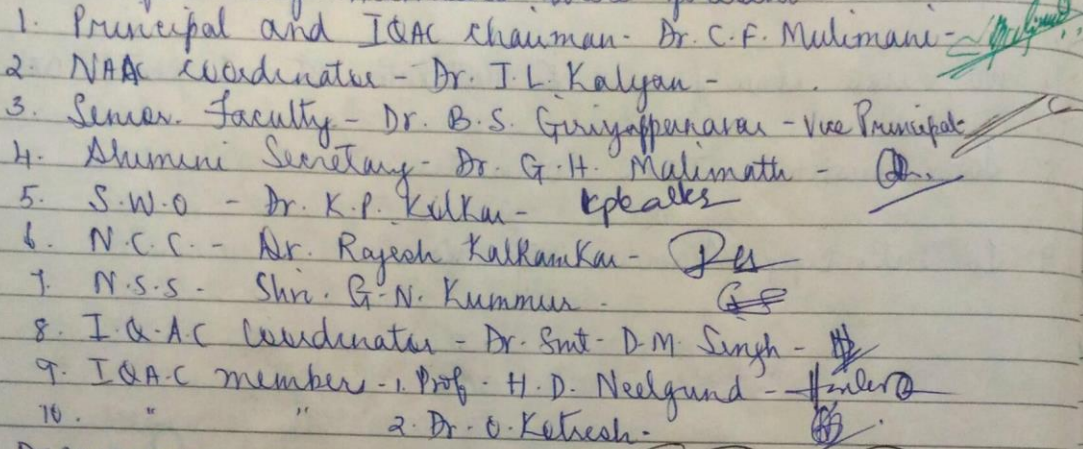 1. Principal and IQAC Chairman - Dr. C.F. Mulimani -
2. NAAC Coordinator - Dr. I.L. Kalyan -
3. Senior Faculty - Dr. B.S. Giriyappanavar - Vice Principal
4. Alumini Secretary - Dr. G.H. Malimath -
5. S.W.O - Dr. K.P. Kulkar -
6. N.C.C. - Dr. Rajesh Kalkamkar -
7. N.S.S - Shri. G.N. Kummur -
8. I.Q.A.C Coordinator - Dr. Smt - D.M. Singh -
9. IQA.C member - 1. Prof. H.D. Neelgund -
10. " " 2. Dr. O. Kotresh -